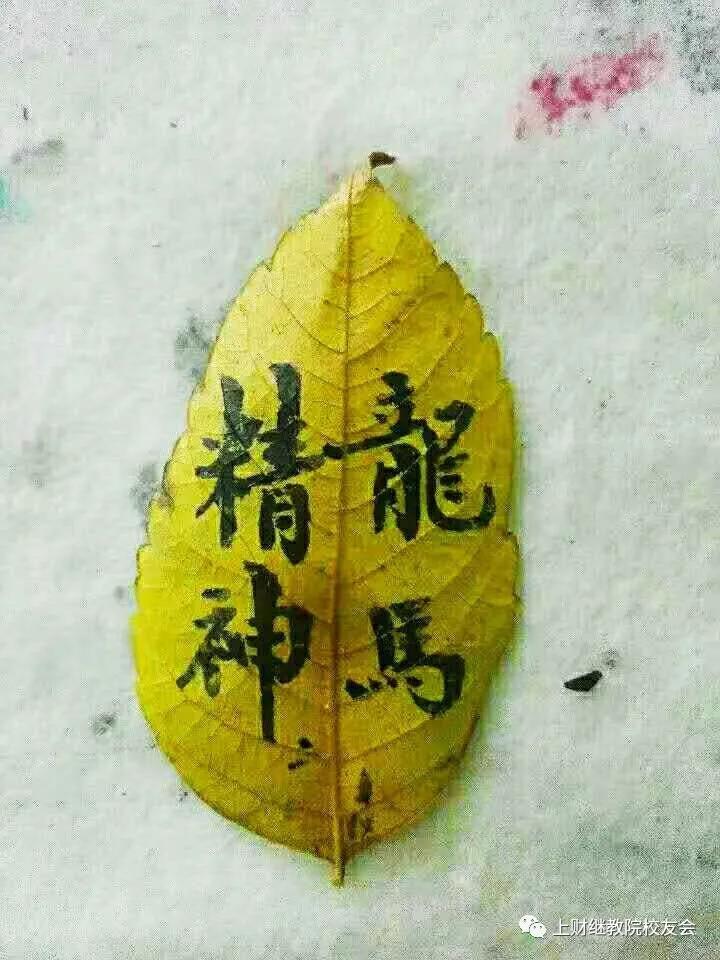 龍馬
精神
上财继教院校友会